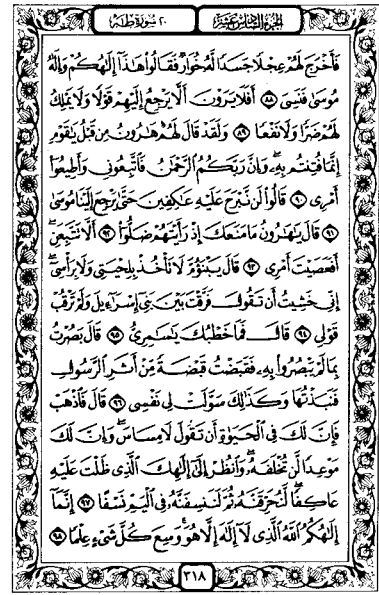 الجزء السادس عشر
٢٠ سورة طه
فَأَخْرَجَ لَهُمْ عِجْلًا جَسَدًا لَّهُ خُوَارٌ فَقَالُوا هَٰذَا إِلَٰهُكُمْ وَإِلَٰهُ
مُوسَىٰ فَنَسِيَ ٨٨ أَفَلَا يَرَوْنَ أَلَّا يَرْجِعُ إِلَيْهِمْ قَوْلًا وَلَا يَمْلِكُ
لَهُمْ ضَرًّا وَلَا نَفْعًا ٨٩ وَلَقَدْ قَالَ لَهُمْ هَٰرُونُ مِن قَبْلُ يَٰقَوْمِ
إِنَّمَا فُتِنتُم بِهِ وَإِنَّ رَبَّكُمُ الرَّحْمَٰنُ فَاتَّبِعُونِي وَأَطِيعُوا
أَمْرِي ٩٠ قَالُوا لَن نَّبْرَحَ عَلَيْهِ عَٰكِفِينَ حَتَّىٰ يَرْجِعَ إِلَيْنَا مُوسَىٰ
٩١ قَالَ يَٰهَٰرُونُ مَا مَنَعَكَ إِذْ رَأَيْتَهُمْ ضَلُّوا ٩٢ أَلَّا تَتَّبِعَنِ
أَفَعَصَيْتَ أَمْرِي ٩٣ قَالَ يَبْنَؤُمَّ لَا تَأْخُذْ بِلِحْيَتِي وَلَا بِرَأْسِي
إِنِّي خَشِيتُ أَن تَقُولَ فَرَّقْتَ بَيْنَ بَنِي إِسْرَٰءِيلَ وَلَمْ تَرْقُبْ
قَوْلِي ٩٤ قَالَ فَمَا خَطْبُكَ يَٰسَٰمِرِيُّ ٩٥ قَالَ بَصُرْتُ
بِمَا لَمْ يَبْصُرُوا بِهِ فَقَبَضْتُ قَبْضَةً مِّنْ أَثَرِ الرَّسُولِ
فَنَبَذْتُهَا وَكَذَٰلِكَ سَوَّلَتْ لِي نَفْسِي ٩٦ قَالَ فَاذْهَبْ
فَإِنَّ لَكَ فِي الْحَيَوٰةِ أَن تَقُولَ لَا مِسَاسَ وَإِنَّ لَكَ
مَوْعِدًا لَّن تُخْلَفَهُ وَانظُرْ إِلَىٰ إِلَٰهِكَ الَّذِي ظَلْتَ عَلَيْهِ
عَاكِفًا لَّنُحَرِّقَنَّهُ ثُمَّ لَنَنسِفَنَّهُ فِي الْيَمِّ نَسْفًا ٩٧ إِنَّمَا
إِلَٰهُكُمُ اللَّهُ الَّذِي لَا إِلَٰهَ إِلَّا هُوَ وَسِعَ كُلَّ شَيْءٍ عِلْمًا ٩٨
٣١٨